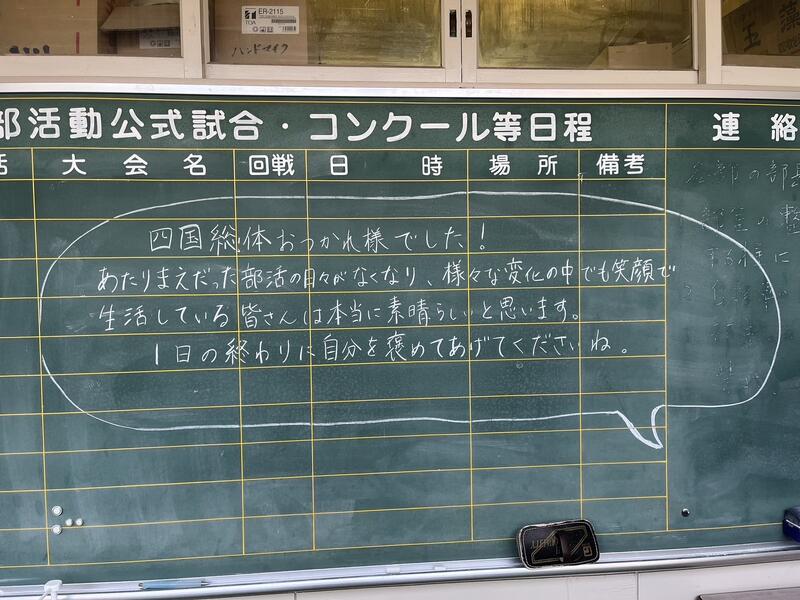 ER-2115
TOA
ハンドマイク
部活動公式試合・コンクール等日程
連絡
大会名 回戦 日時 場所 備考
四国総体おつかれ様でした！
あたりまえだった部活の日々がなくなり、様々な変化の中でも笑顔で
生活している皆さんは本当に素晴らしいと思います。
1日の終わりに自分を褒めてあげてくださいね。